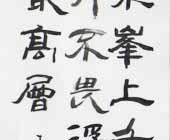 來峯上
升不畏浮
最高層